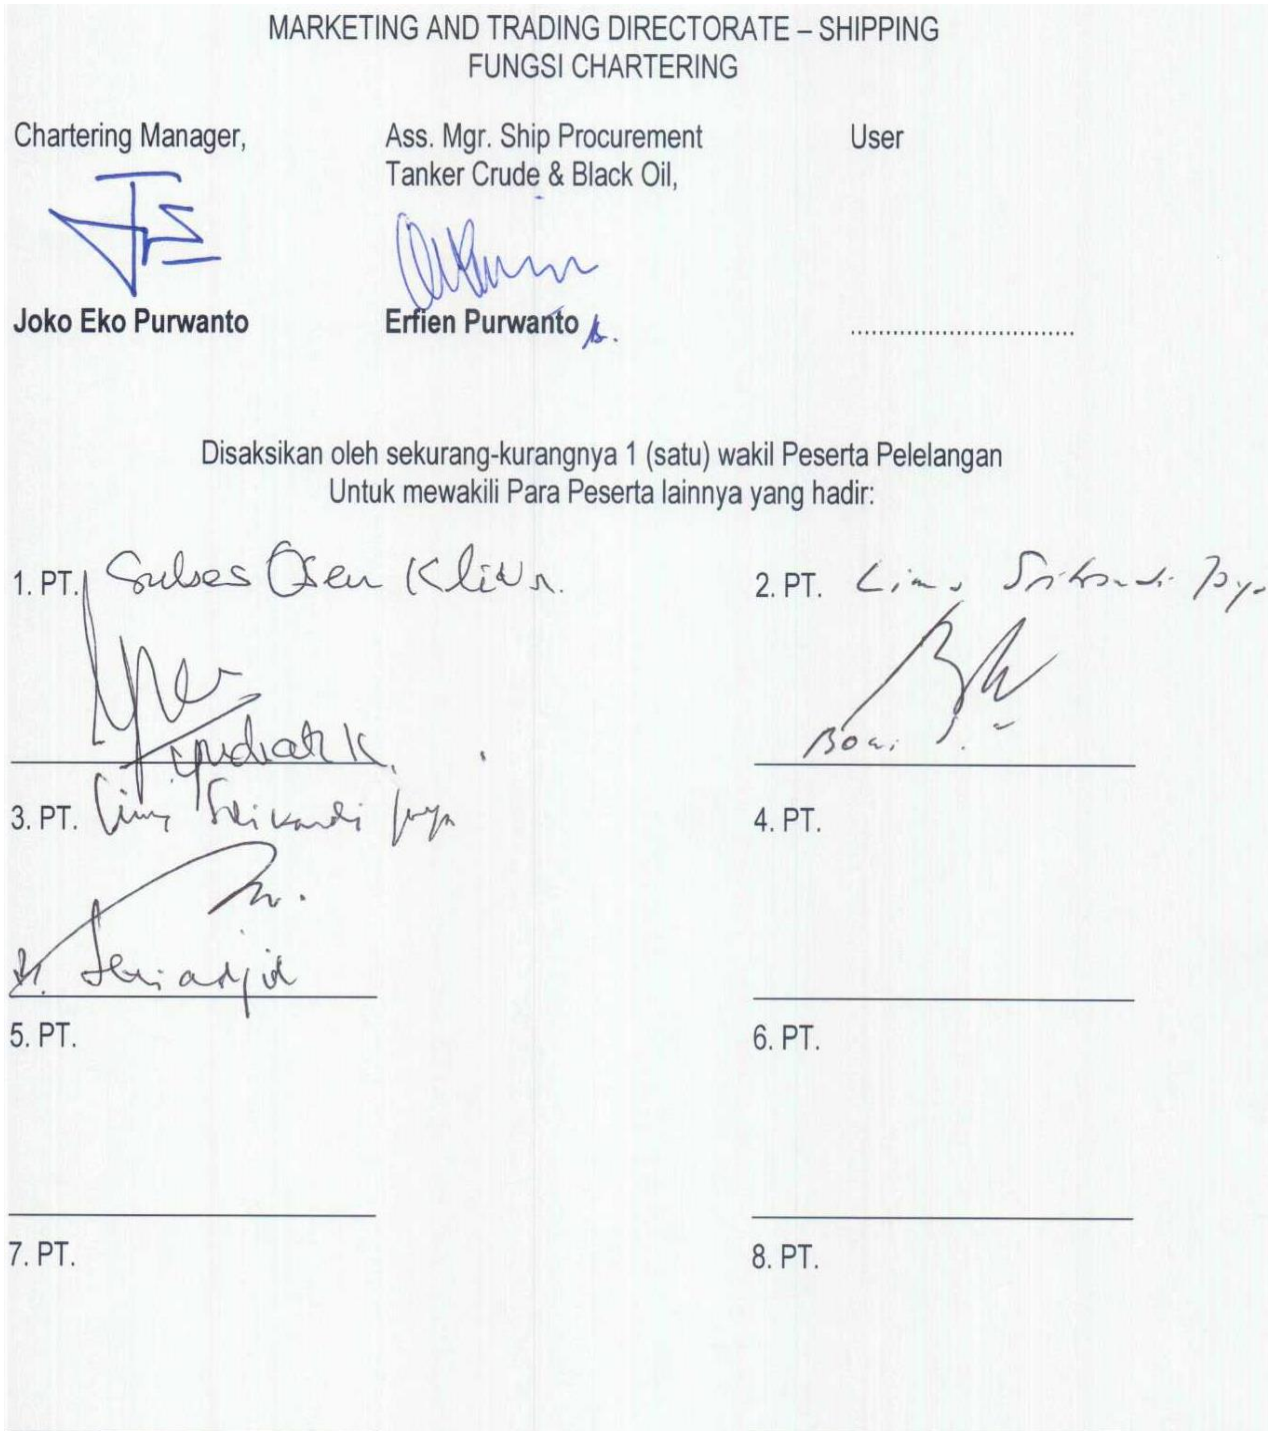 MARKETING AND TRADING DIRECTORATE – SHIPPING
FUNGSI CHARTERING
Chartering Manager,
Ass. Mgr. Ship Procurement
Tanker Crude & Black Oil,
User
Joko Eko Purwanto
Erfien Purwanto
..............................
Disaksikan oleh sekurang-kurangnya 1 (satu) wakil Peserta Pelelangan
Untuk mewakili Para Peserta lainnya yang hadir:
1. PT. Sukses Osen
2. PT. Lima Srikandi Jaya
3. PT. Lima Srikandi Jaya
4. PT.
5. PT.
6. PT.
7. PT.
8. PT.